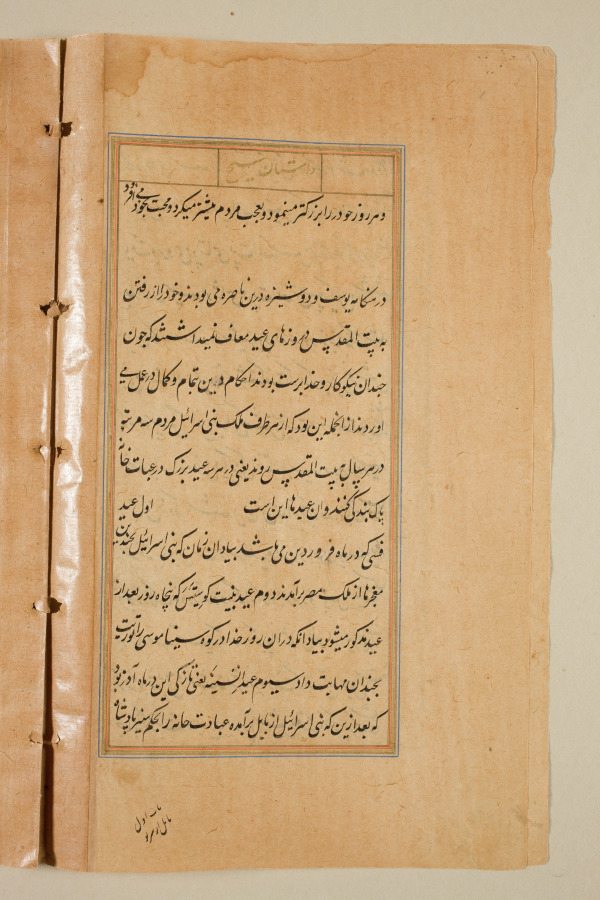 داستان مسیح
و هر روز خود را بزرکتر مینمود و تعجب مردم بیشتر میکرد و محبت بخود می افزود
در هنکامه یوسف و دوشیزه درین ناصره می بودند و خود را از رفتن
به بیت المقدس در روزهای عید معاف نمیداشتند که چون
چندان نیکوکار و خداپرست بودند احکام دین بتمام و کمال در عمل می
آوردند از انجمله این بود که از هر طرف ملک بنی اسرائیل مردم سه مرتبه
در هر سال به بیت المقدس روند یعنی در هر سه عید بزرک در عبادت خانه
پاک بندکی کنند و ان عیدها این است اول عید
فسی که در ماه فروردین می باشد بیاد ان زمان که بنی اسرائیل بچندین
معجزها از ملک مصر برآمدند دوم عید که پنجاه روز بعد از
عید مذکور میشود بیاد انکه در ان روز خدا در کوه سینا موسی را توریت
بچندان مهابت داد سیوم عید یعنی تازکی این در ماه آذر بود
که بعد ازین که بنی اسرائیل از بابل برآمده عبادت خانه را بحکم پادشاه
باب اول